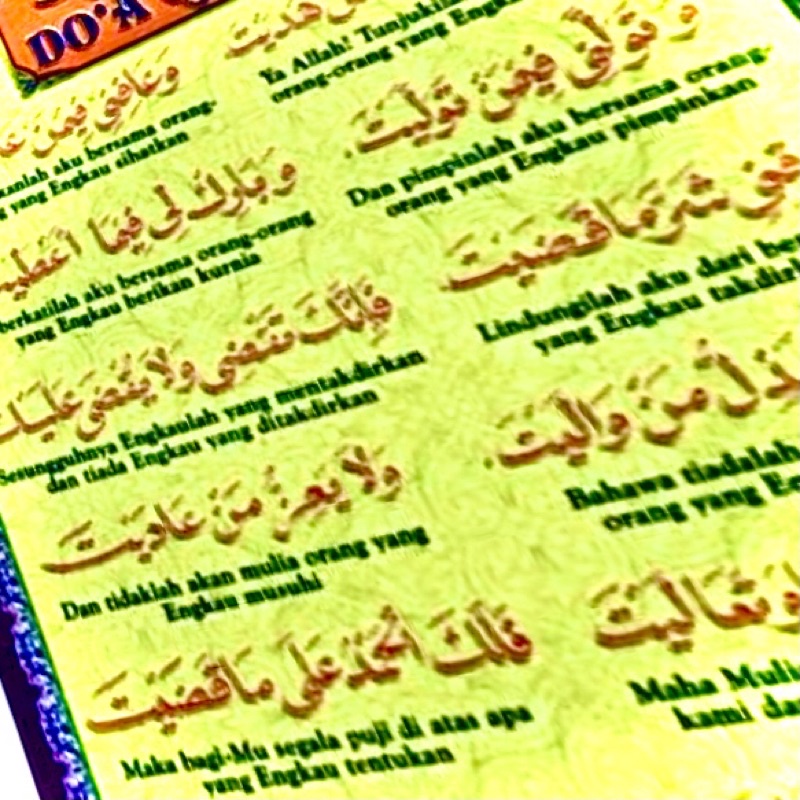 DO.A
هديت
Ya Allah! Tunjuki
orang-orang yang Engk
وعافني فيمن
kanlah aku bersama orang-
yang Engkau sihatkan
وتولني فيمن توليت
Dan pimpinlah aku bersama orang-
orang yang Engkau pimpinkan
وبارك لي فيما اعطي
berkatilah aku bersama orang-orang
yang Engkau berikan kurnia
شر ما قضيت
Lindungilah aku dari
yang Engkau takdi
فإنك تقضي ولا يقضى عليك
Sesungguhnya Engkaulah yang mentakdirkan
dan tiada Engkau yang ditakdirkan
ذل من واليت
Bahawa tiadalah
orang yang
ولا يعز من عاديت
Dan tidaklah akan mulia orang yang
Engkau musuhi
وتعاليت
Maha Muli
kami da
فلك الحمد على ما قضيت
Maka bagi-Mu segala puji di atas apa
yang Engkau tentukan